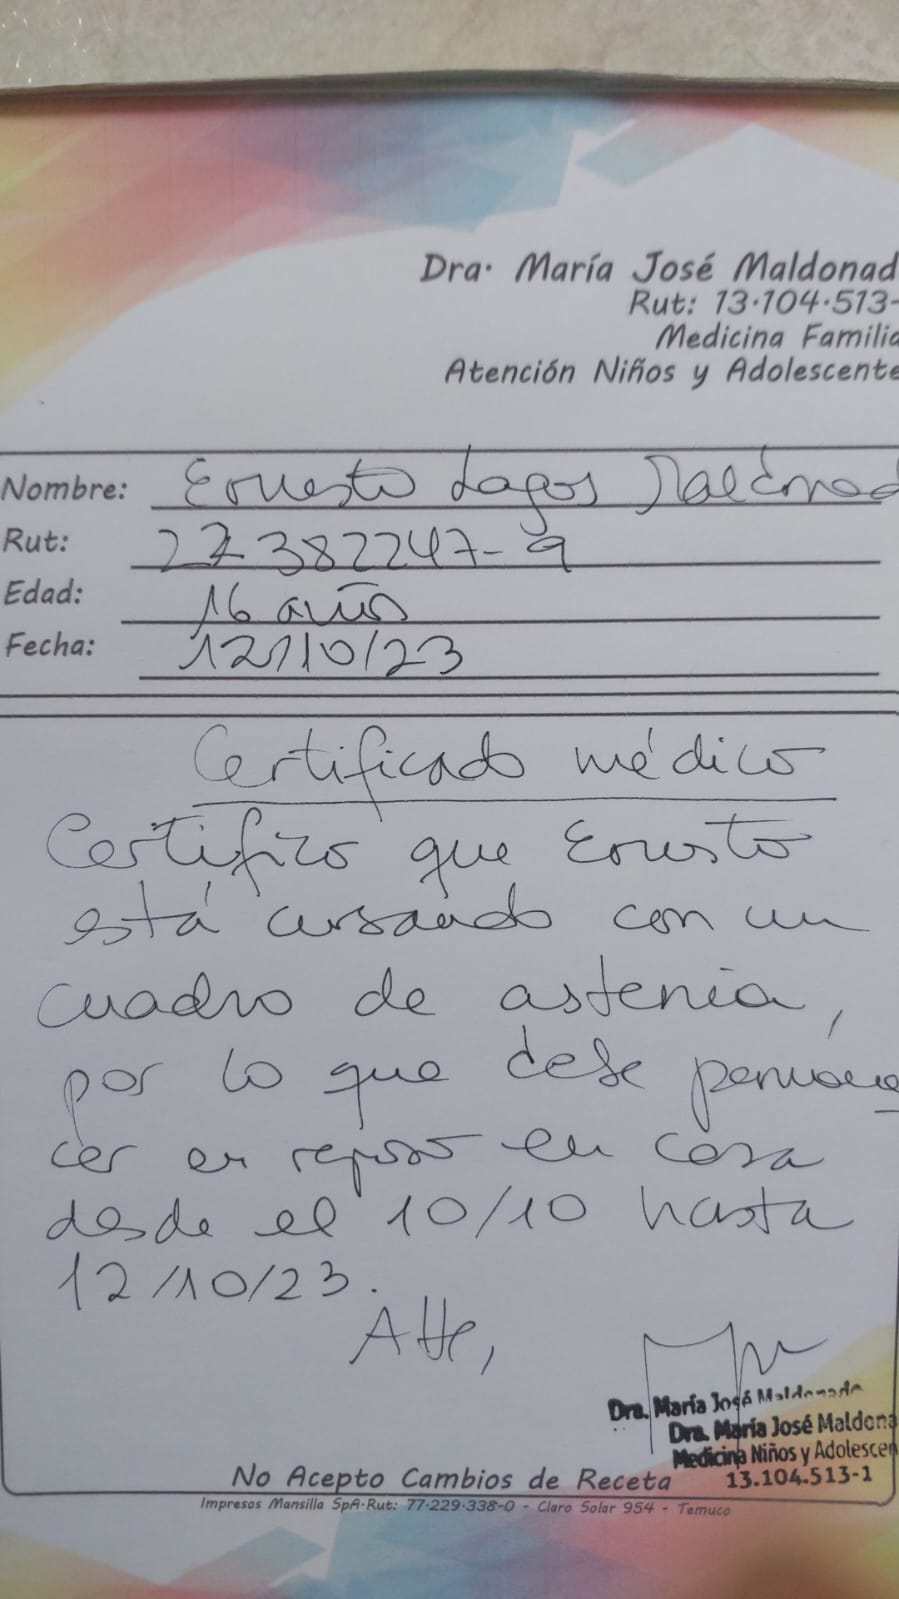 Dra. María José Maldonad
Rut: 13.104.513-
Medicina Familia
Atención Niños y Adolescente
Nombre: Ernesto Lagos Maldonad
Rut: 22382247-9
Edad: 16 años
Fecha: 12/10/23
Certificado médico
Certifico que Ernesto
está cursando con un
cuadro de astenia,
por lo que debe permane
cer en reposo en casa
desde el 10/10 hasta
12/10/23.
Atte,
Dra. María José Maldonado
Dra. María José Maldona
Medicina Niños y Adolescen
13.104.513-1
No Acepto Cambios de Receta
Impresos Mansilla SpA-Rut: 77.229.338-0 - Claro Solar 954 - Temuco